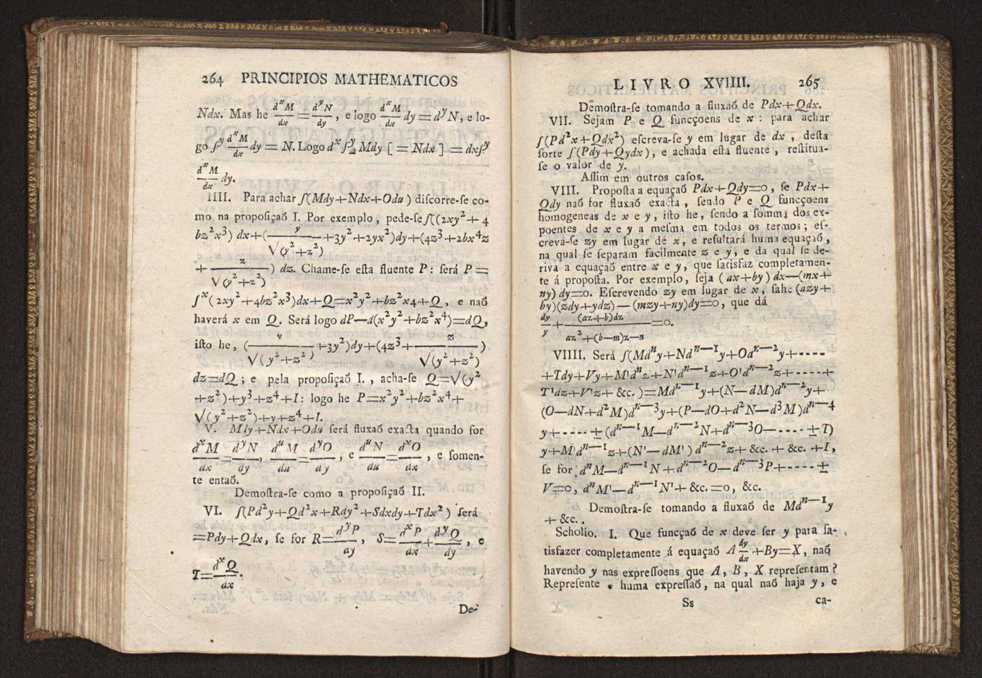 264 PRINCIPIOS MATHEMATICOS
Ndx. Mas he dˣM/dx = dʸN/dy, e logo dˣM/dx dy = dʸN, e lo-
go ſʸ dˣM/dx dy = N. Logo dˣſʸ Mdy [ = Ndx ] = dxſʸ
dˣM/dx dy.
IIII. Para achar ſ(Mdy+Ndx+Odu) diſcorre-ſe co-
mo na propoſiçaõ I. Por exemplo, pede-ſe ſ((2xy²+4
bz²x³) dx+(y/√(y²+z²)+3y²+2yx²)dy+(4z³+2bx⁴z
+z/√(y²+z²)) dz. Chame-ſe eſta fluente P: ſerá P=
ſˣ(2xy²+4bz²x³)dx+Q=x²y²+bz²x4+Q, e naõ
haverá x em Q. Será logo dP—d(x²y²+bz²x⁴)=dQ,
iſto he, (y/√(y²+z²)+3y²)dy+(4z³+z/√(y²+z²))
dz=dQ; e pela propoſiçaõ I., acha-ſe Q=√(y²
+z²)+y³+z⁴+I: logo he P=x²y²+bz²x⁴+
√(y²+z²)+y+z⁴+I.
V. Mdy+Ndx+Odu ſerá fluxaõ exacta quando for
dˣM/dx=dʸN/dy, dᵘM/du=dʸO/dy, e dᵘN/du=dˣO/dx, e ſomen-
te entaõ.
Demoſtra-ſe como a propoſiçaõ II.
VI. ſ(Pd²y+Qd²x+Rdy²+Sdxdy+Tdx²) ſerá
=Pdy+Qdx, ſe for R=dʸP/dy, S=dˣP/dx+dʸQ/dy, e
T=dˣQ/dx.
De-
LIVRO XVIIII. 265
Demoſtra-ſe tomando a fluxaõ de Pdx+Qdx.
VII. Sejam P e Q funcçoens de x: para achar
ſ(Pd²x+Qdx²) eſcreva-ſe y em lugar de dx, deſta
ſorte ſ(Pdy+Qydx), e achada eſta fluente, reſtitua-
ſe o valor de y.
Aſſim em outros caſos.
VIII. Propoſta a equaçaõ Pdx+Qdy=0, ſe Pdx+
Qdy naõ for fluxaõ exacta, ſendo P e Q funcçoens
homogeneas de x e y, iſto he, ſendo a ſomma dos ex-
poentes de x e y a meſma em todos os termos; eſ-
creva-ſe zy em lugar de x, e reſultará huma equaçaõ,
na qual ſe ſeparam facilmente z e y, e da qual ſe de-
riva a equaçaõ entre x e y, que ſatisfaz completamen-
te á propoſta. Por exemplo, ſeja (ax+by)dx—(mx+
ny)dy=0. Eſcrevendo zy em lugar de x, ſahe (azy+
by)(zdy+ydz)—(mzy+ny)dy=0, que dá
dy/y+(az+b)dz/az²+(b—m)z—n=0.
VIIII. Será ſ(Mdⁿy+Ndⁿ—¹y+Odⁿ—²y+----
+Tdy+Vy+M'dⁿz+N'dⁿ—¹z+O'dⁿ—²z+----+
T'dz+V'z+&c.)=Mdⁿ—¹y+(N—dM)dⁿ—²y+
(O—dN+d²M)dⁿ—³y+(P—dO+d²N—d³M)dⁿ—⁴
y+----±(dⁿ—¹M—dⁿ—²N+dⁿ—³O—----±T)
y+M'dⁿ—¹z+(N'—dM')dⁿ—²z+&c.+&c.+I,
ſe for dⁿM—dⁿ—¹N+dⁿ—²O—dⁿ—³P+----±
V=0, dⁿM'—dⁿ—¹N'+&c.=0, &c.
Demoſtra-ſe tomando a fluxaõ de Mdⁿ—¹y
+&c..
Scholio. I. Que funcçaõ de x deve ſer y para ſa-
tisfazer completamente á equaçaõ A dy/dx+By=X, naõ
havendo y nas expreſſoens que A, B, X repreſentam?
Repreſente huma expreſſaõ, na qual naõ haja y, e
Ss ca-